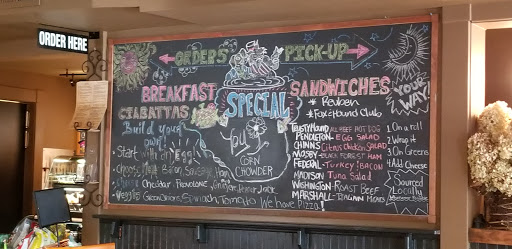 ORDER HERE
ORDERS
PICK-UP
BREAKFAST
CIABATTAS
Build your own!
Start with Egg
Choose Bacon,
Cheddar Provolone
Veggies Green Onions, Spinach, Tomato
We have Pizza!
SPECIAL
CORN
CHOWDER
SANDWICHES
* Reuben
* Fox & Hound Club
TRUSTY HOUND ALL BEEF HOT DOG
PENDLETON - EGG SALAD
CHINNS Citrus Chicken SALAD
MOSBY - BLACK FOREST HAM
FEDERAL - Turkey & BACON
MADISON Tuna Salad
WASHINGTON - ROAST BEEF
MARSHALL - ITALIAN MEATS
YOUR
WAY!
1. On a roll
2. Wrap it
3. On Greens
4. Add Cheese
Sourced
Locally